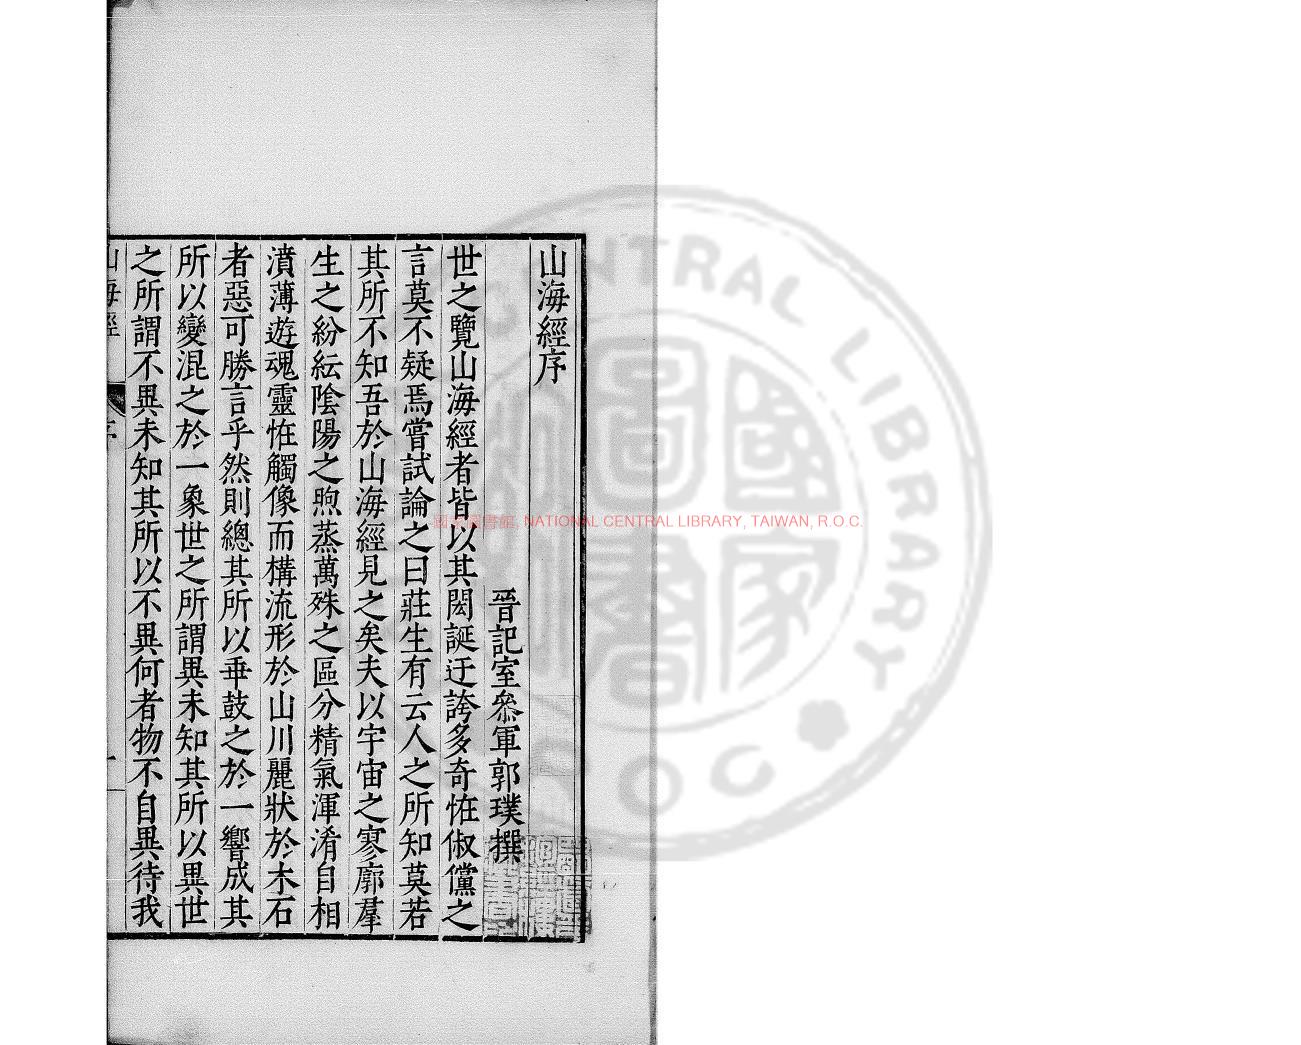 山海經序
晉記室叅軍郭璞撰
世之覽山海經者皆以其閎誕迂誇多奇恠俶儻之
言莫不疑焉嘗試論之曰莊生有云人之所知莫若
其所不知吾於山海經見之矣夫以宇宙之寥廓羣
生之紛紜陰陽之煦蒸萬殊之區分精氣渾淆自相
濆薄遊魂靈恠觸像而構流形於山川麗狀於木石
者惡可勝言乎然則總其所以乖鼓之於一響成其
所以變混之於一象世之所謂異未知其所以異世
之所謂不異未知其所以不異何者物不自異待我
山海經
序
一
國家圖書館, NATIONAL CENTRAL LIBRARY, TAIWAN, R.O.C.
CENTRAL LIBRARY